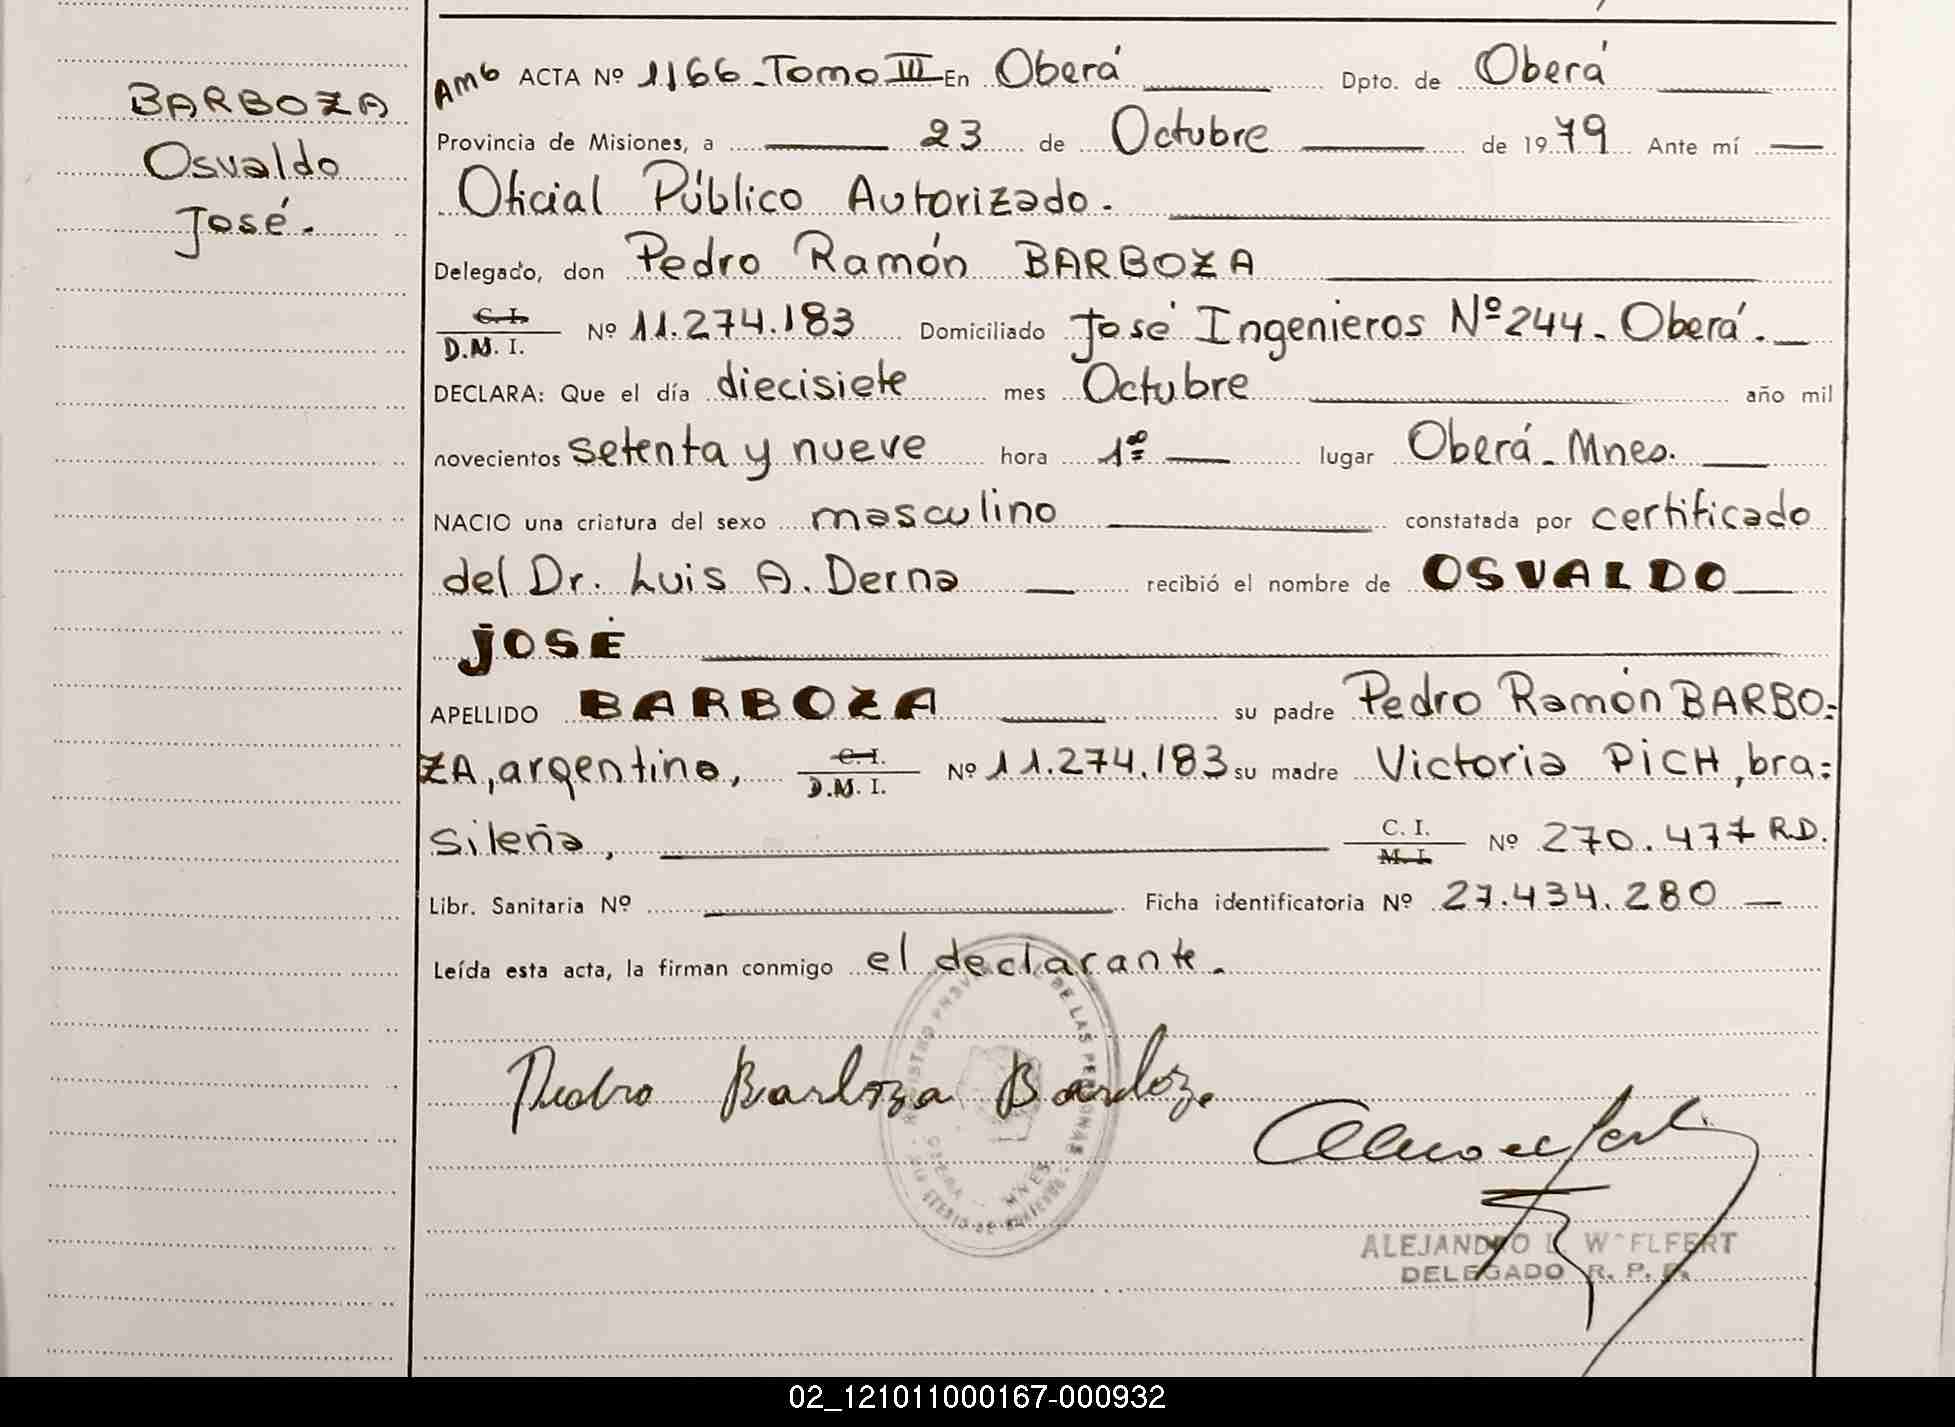 BARBOZA
Osvaldo
José.
Amb ACTA Nº 1166_Tomo III En Oberá Dpto. de Oberá
Provincia de Misiones, a 23 de Octubre de 1979 Ante mí
Oficial Público Autorizado.
Delegado, don Pedro Ramón BARBOZA
C. I.
D.M. I. Nº 11.274.183 Domiciliado José Ingenieros Nº 244. Oberá.
DECLARA: Que el día diecisiete mes Octubre año mil
novecientos setenta y nueve hora 1 lugar Oberá. Mnes.
NACIO una criatura del sexo masculino constatada por certificado
del Dr. Luis A. Derna recibió el nombre de OSVALDO
JOSÉ
APELLIDO BARBOZA su padre Pedro Ramón BARBO=
ZA, argentino, C.I. D.M. I. Nº 11.274.183 su madre Victoria PICH, bra=
sileña, C. I. M. I. Nº 270.477 R.D.
Libr. Sanitaria Nº Ficha identificatoria Nº 27.434.280
Leída esta acta, la firman conmigo el declarante.
Pedro Barboza Bardoze
DE LAS PERSONAS
MNES
ALEJANDRO L. W FLFERT
DELEGADO R. P. P.
02_121011000167-000932